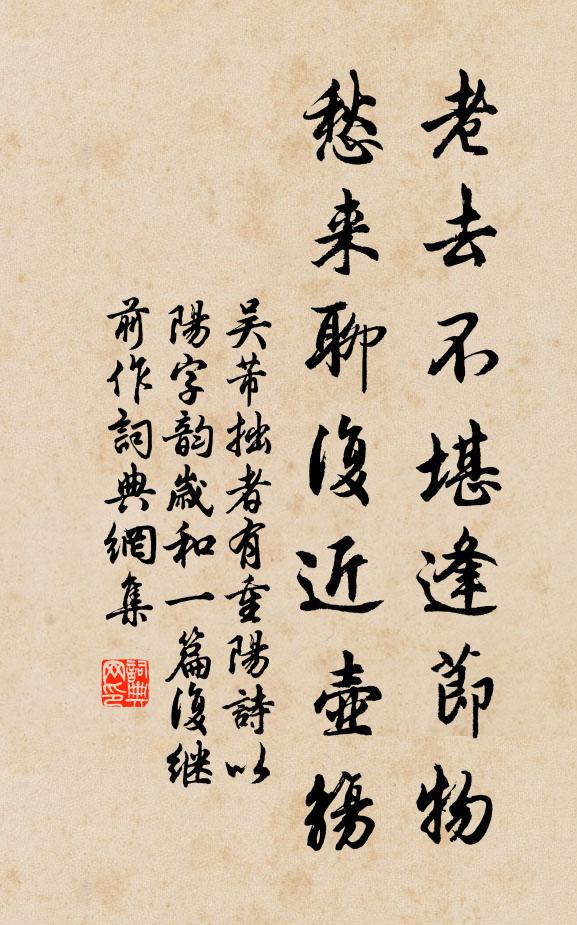 老去不堪逢節物
愁来聊復近壺觴
吴芾拙者有重陽詩以
陽字韵歳和一篇復继
前作詞典網集
詞典
网印